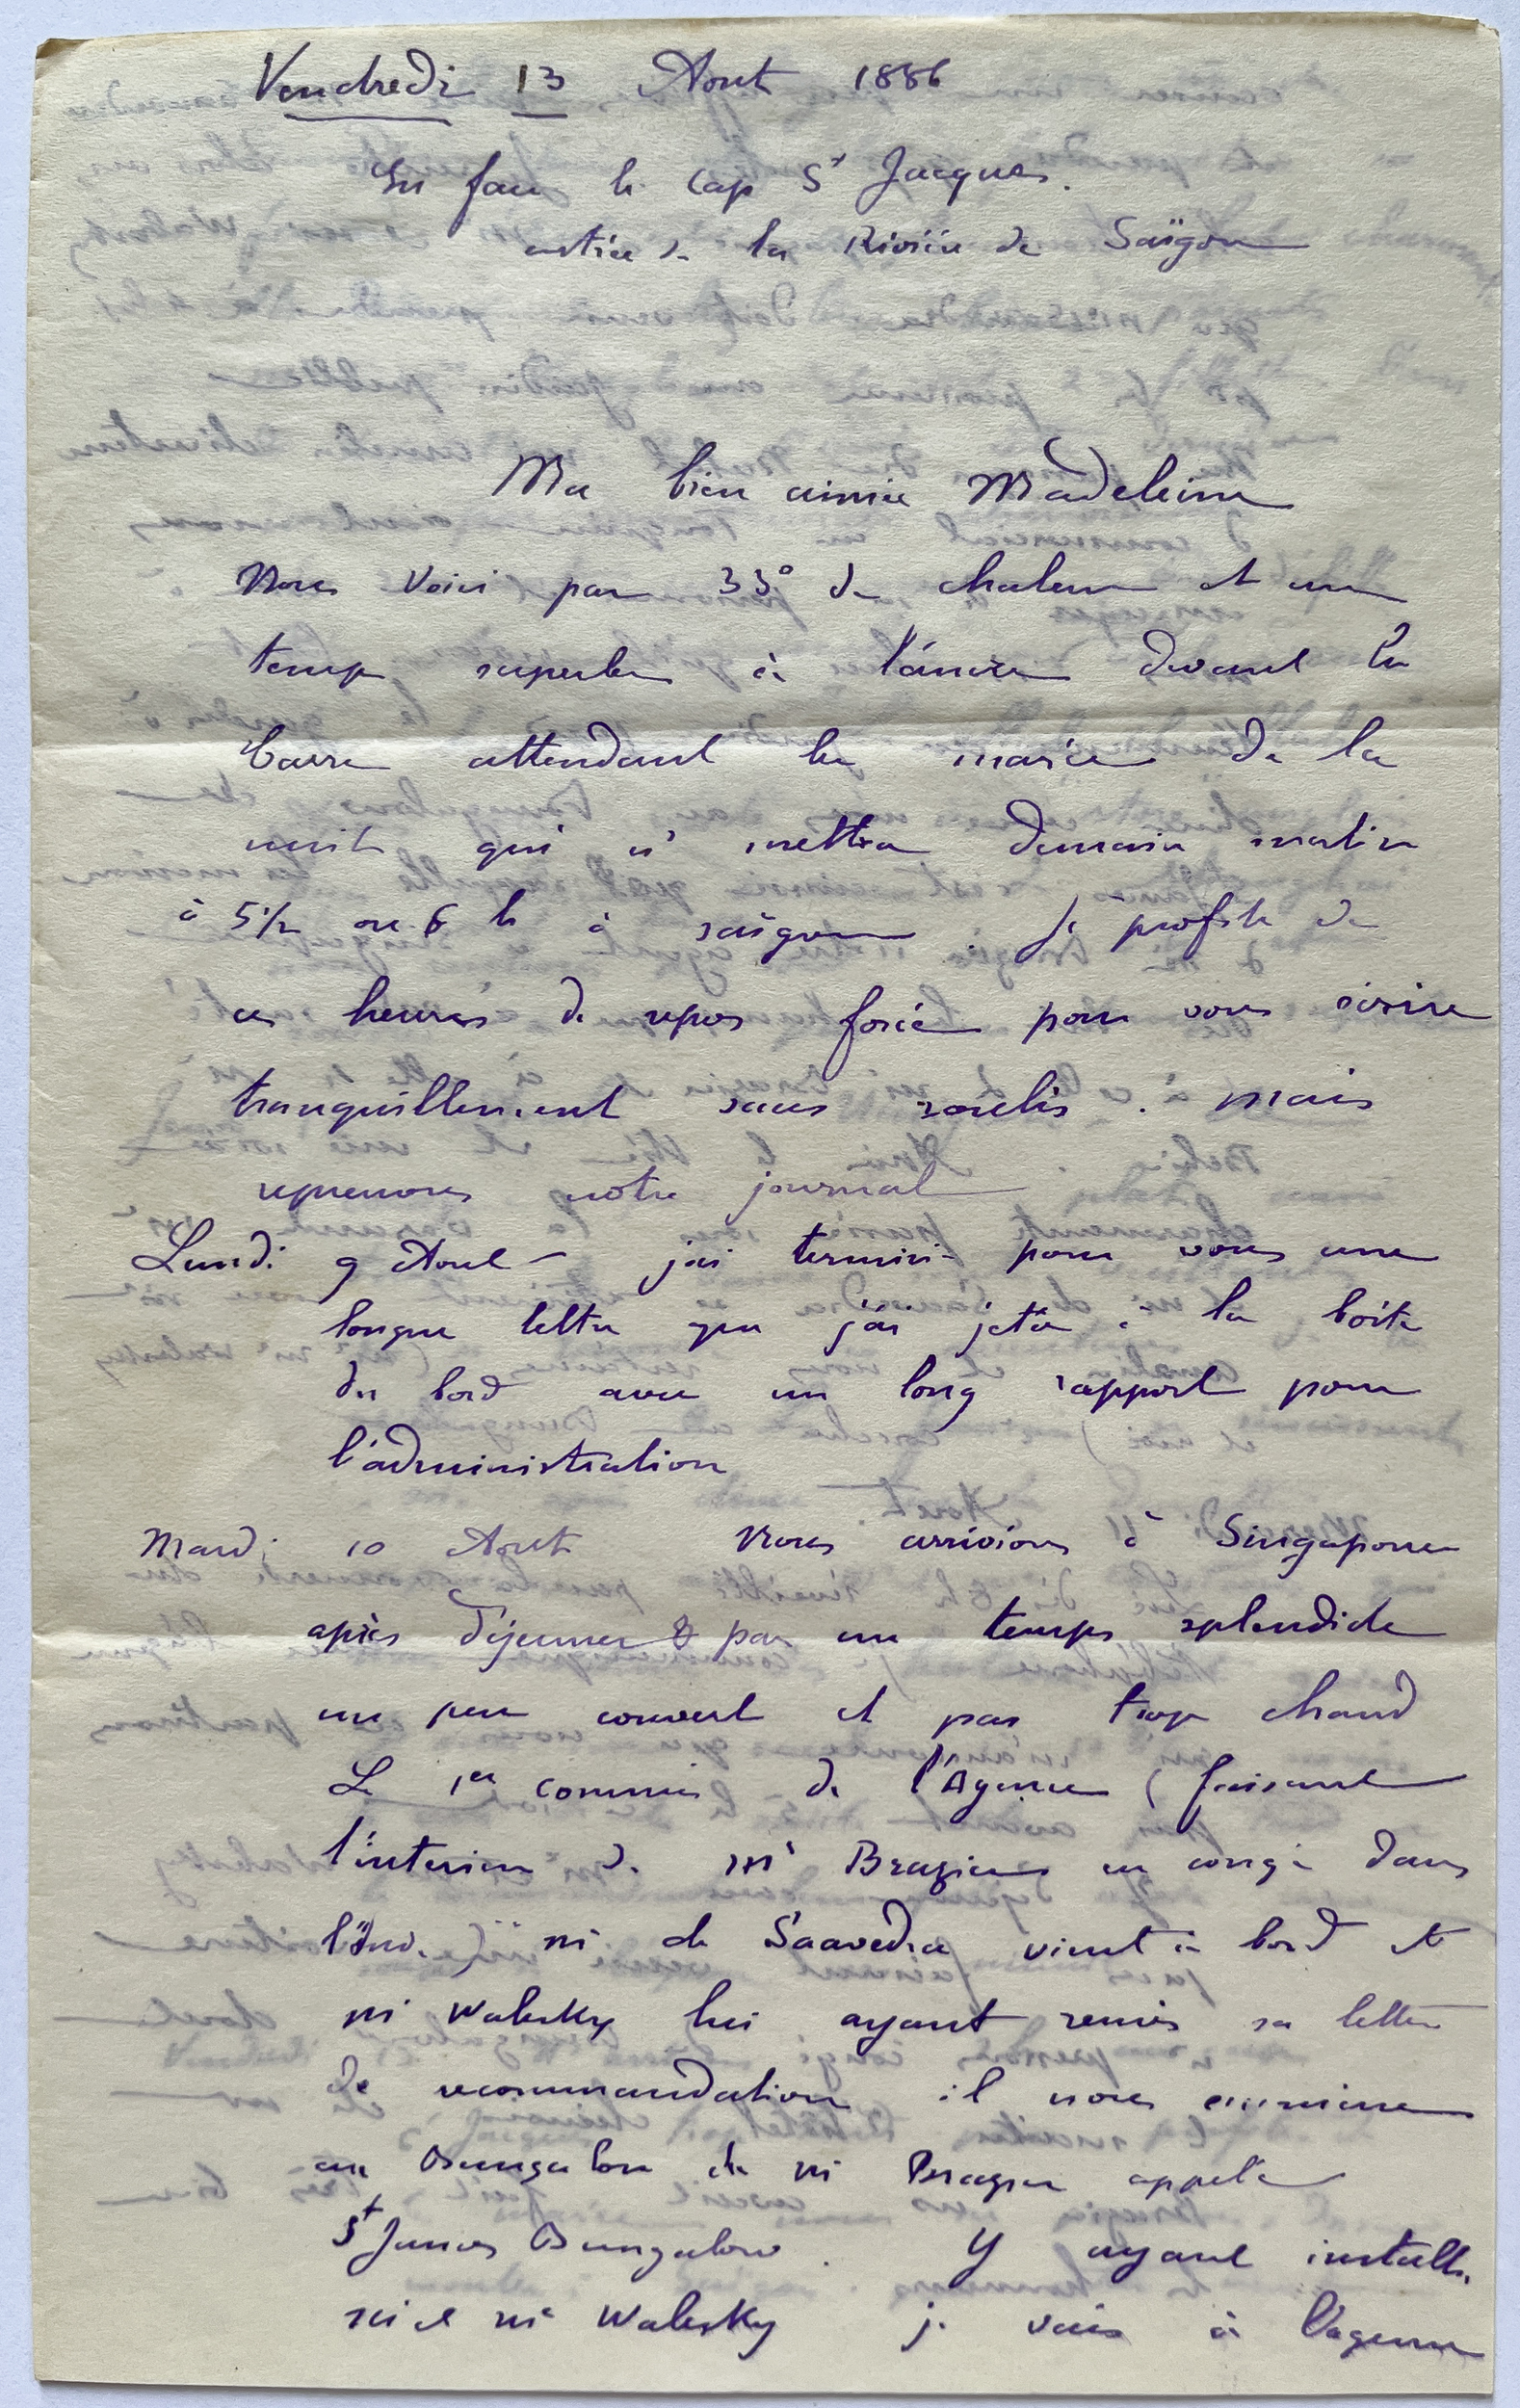 Vendredi 13 Aout 1886
En face le Cap St Jacques.
entrée de la Rivière de Saïgon
Ma bien aimée Madeleine
Nous voici par 33° de chaleur et un
temps superbe à l'ancre devant la
barre attendant la marée de la
nuit qui n' mettra demain matin
à 5 1/2 ou 6 h à saïgon. Je profite de
ces heures de repos forcé pour vous écrire
tranquillement sans roulis. mais
reprenons notre journal
Lundi 9 Aout - j'ai terminé pour vous une
longue lettre que j'ai jetée à la boite
du bord avec un long rapport pour
l'administration
Mardi 10 Aout Nous arrivions à Singapour
après déjeuner & par un temps splendide
un peu couvert et pas trop chaud
Le 1er commis de l'Agence (faisant
l'interim de Mr Brasier en congé dans
l'Inde) Mr de Saavedra vient à bord et
Mr Walesky lui ayant remis sa lettre
de recommandation il nous emmène
au Bungalow de Mr appelé
St James Bungalow. Y ayant installé
Mr Walesky je vais à l'agence